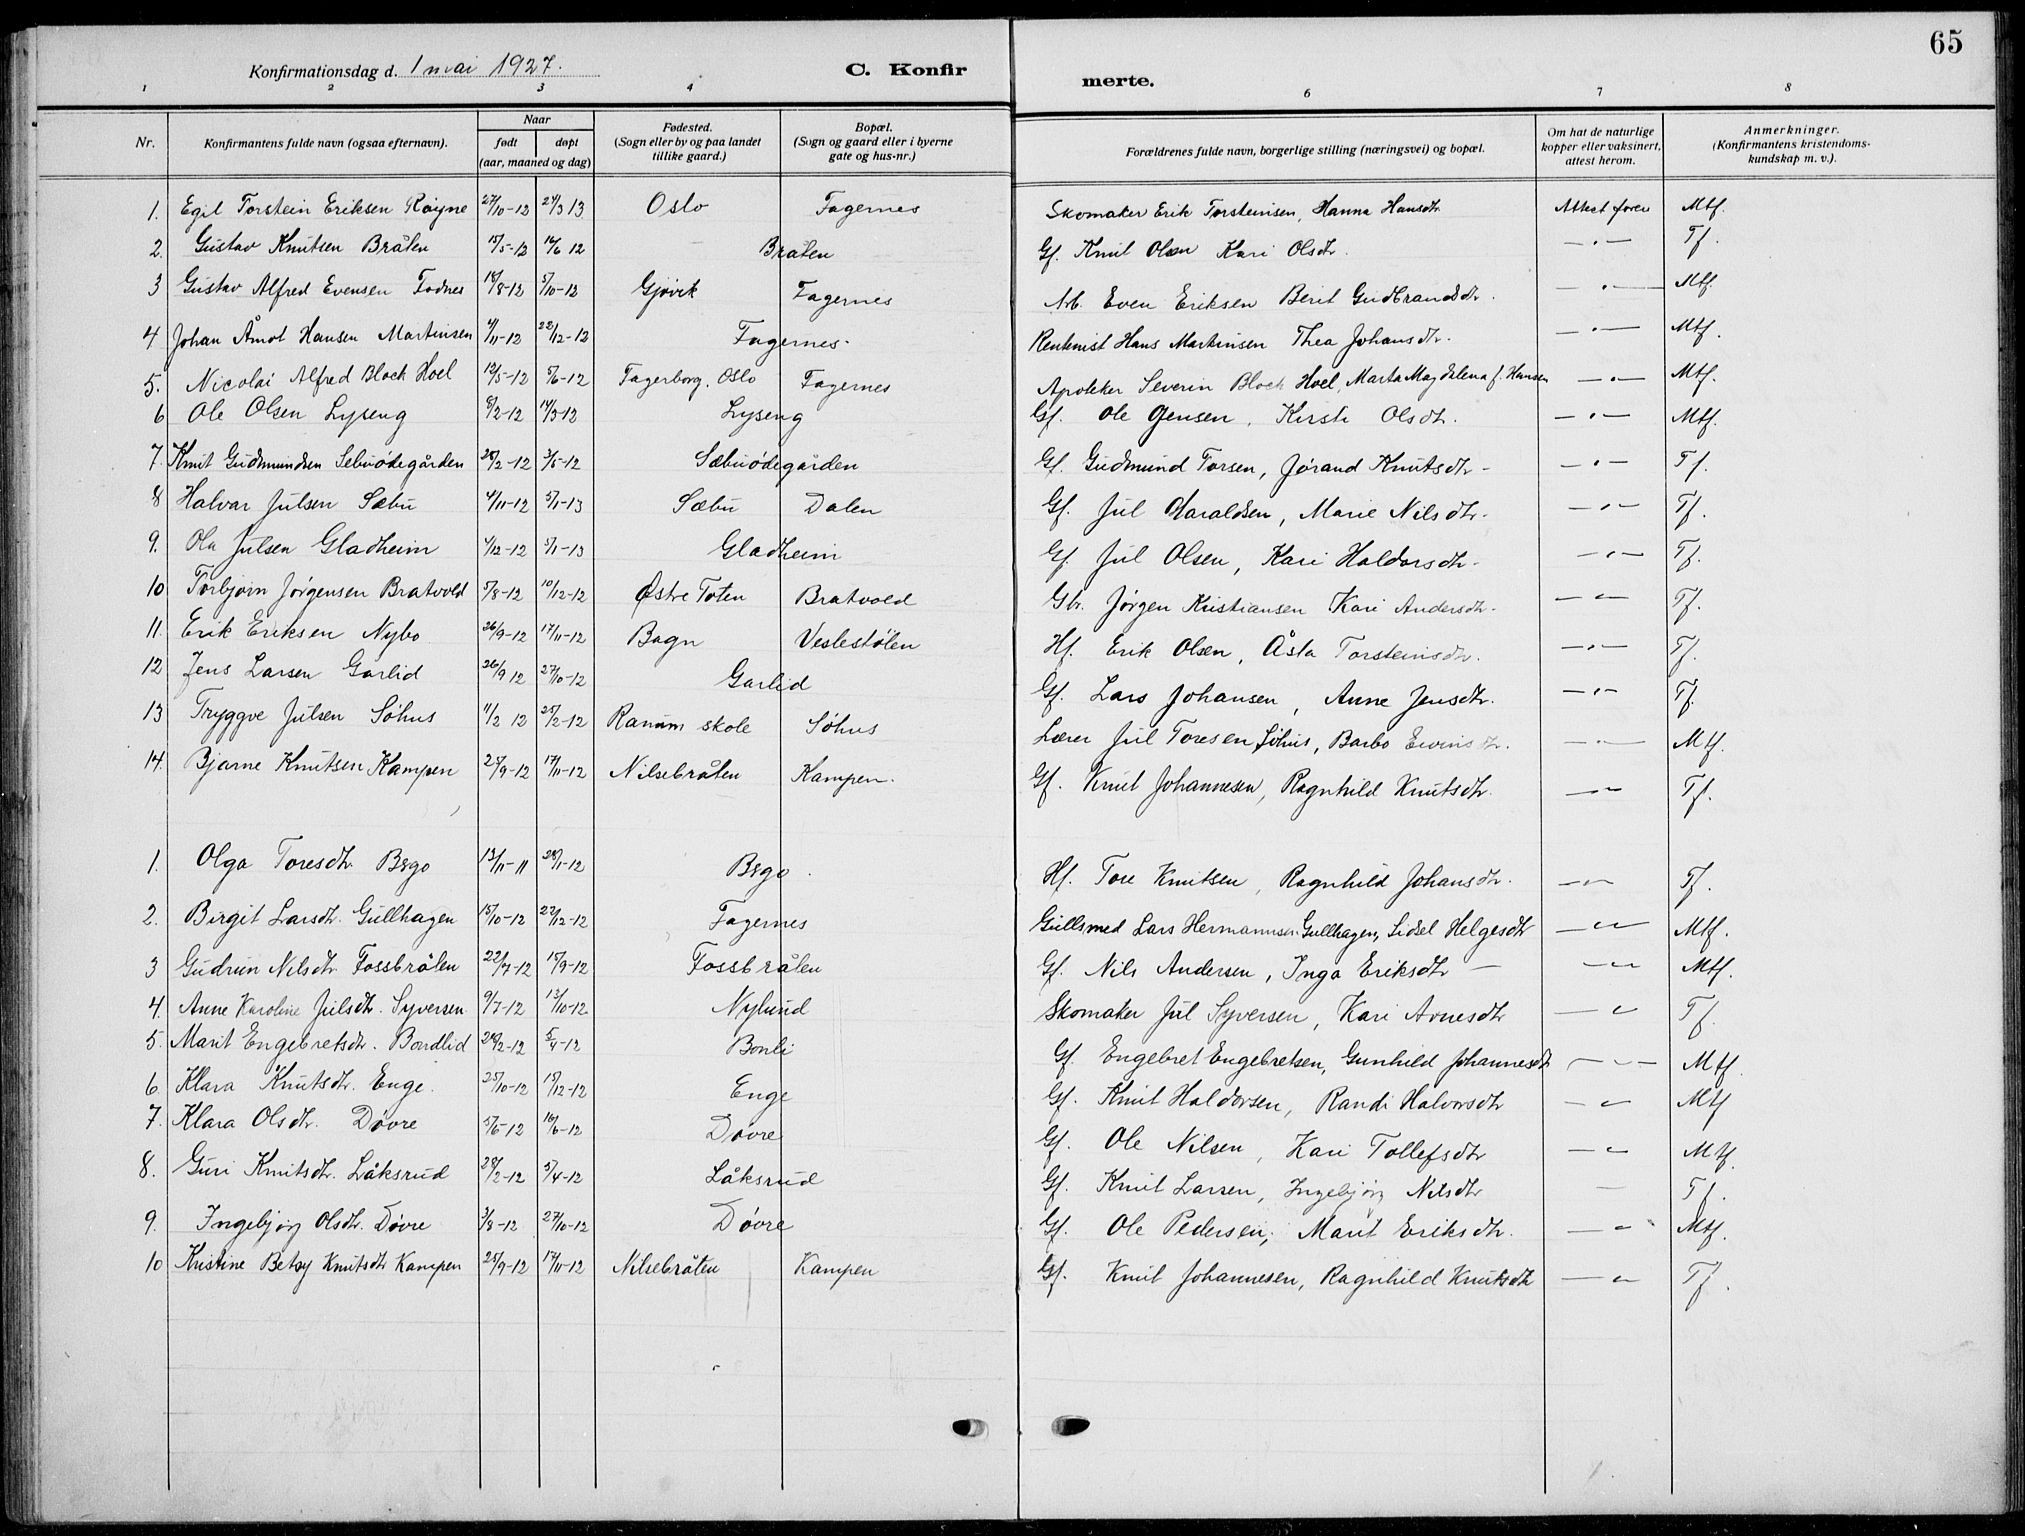 65
Konfirmationsdag d. 1 mai 1927.
C. Konfirmerte.
1 2 3 4 6 7 8
Nr. | Konfirmantens fulde navn (ogsaa efternavn). | Naar født døpt (aar, maaned og dag) | Fødested. (Sogn eller by og paa landet tillike gaard.) | Bopæl. (Sogn og gaard eller i byerne gate og hus-nr.) | Forældrenes fulde navn, borgerlige stilling (næringsvei) og bopæl. | Om hat de naturlige kopper eller vaksinert, attest herom. | Anmerkninger. (Konfirmantens kristendomskundskap m. v.).
1. Egil Torstein Eriksen Røyne 27/10-12 24/3 13 Oslo Fagernes Skomaker Erik Torsteinsen, Hanna Hansdtr Attest forev Mtf.
2. Gustav Knutsen Bråten 15/5-12 16/6 12 Bråten Gf. Knut Olsen Kari Olsdtr. -"- Tf.
3 Gustav Alfred Evensen Fodnes 18/8-12 5/10-12 Gjøvik Fagernes Arb. Even Eriksen Berit Gudbrandsdtr. -"- Mtf.
4 Johan Åmot Hansen Martinsen 4/11-12 22/12-12 Fagernes. Rentenist Hans Martinsen Thea Johansdtr. -"- Mtf.
5. Nicolai Alfred Block Hoel 12/5-12 5/6-12 Fagerborg, Oslo Fagernes Apoteker Severin Block Hoel, Marta Magdalena f. Hansen -"- Mtf.
6 Ole Olsen Lyseng 8/2-12 14/3-12 Lyseng Gf. Ole Jensen, Kirsti Olsdtr. -"- Mtf.
7. Knut Gudmundsen Sebuødegården 28/2-12 3/5-12 Sæbuødegården Gf. Gudmund Torsen, Jørand Knutsdtr - -"- Tf.
8 Halvar Julsen Sæbu 4/11-12 5/1-13 Sæbu Dalen Gf. Jul Haraldsen, Marie Nilsdtr. -"- Tf.
9. Ola Julsen Gladheim 4/12-12 5/1-13 Gladheim Gf. Jul Olsen, Kari Haldorsdtr. -"- Tf.
10 Torbjørn Jørgensen Bratvold 5/8-12 10/12-12 Østre Toten Bratvold Gbr. Jørgen Kristiansen Kari Andersdtr. -"- Tf.
11. Erik Eriksen Nybo 26/9-12 17/11-12 Bagn Veslestølen Hf. Erik Olsen, Åsta Torsteinsdtr. -"- Tf.
12 Jens Larsen Garlid 26/9 12 27/10-12 Garlid Gf. Lars Johansen, Anne Jensdtr. -"- Tf.
13 Tryggve Julsen Søhus 11/2 12 25/2-12 Ranum skole Søhus Lærer Jul Toresen Søhus, Barbo Evensdtr. -"- Mtf.
14. Bjarne Knutsen Kampen 25/9-12 17/11-12 Nilsebråten Kampen. Gf. Knut Johannesen, Ragnhild Knutsdtr. -"- Tf.
1. Olga Toresdtr. Bergo 13/11-11 28/1-12 Bergo. Hf. Tore Knutsen, Ragnhild Johansdtr. -"- Tf.
2. Birgit Larsdtr. Gullhagen 15/10-12 22/12-12 Fagernes Gullsmed Lars Hermannsen Gullhagen, Sidsel Helgesdtr -"- Mtf.
3 Gudrun Nilsdtr. Fossbråten 22/7-12 15/9-12 Fossbråten Gf. Nils Andersen, Inga Eriksdtr - -"- Mtf.
4. Anne Karoline Julsdtr. Syversen 9/7-12 13/10-12 Nylund Skomaker Jul Syversen, Kari Arnesdtr -"- Tf.
5. Marit Engebretsdtr. Bondlid 28/2-12 5/4-12 Bonli Gf. Engebret Engebretsen, Gunhild Johannesdtr -"- Mtf.
6. Klara Knutsdtr. Enge. 25/10-12 15/12-12 Enge Gf. Knut Haldorsen, Randi Halvorsdtr -"- Mtf
7. Klara Olsdtr. Døvre 5/5-12 16/6-12 Døvre Gf. Ole Nilsen, Kari Tollefsdtr -"- Mtf.
8. Guri Knutsdtr. Låksrud 28/2-12 5/4-12 Låksrud Gf. Knut Larsen, Ingebjørg Nilsdtr — Tf.
9. Ingebjørg Olsdtr. Døvre 3/8-12 27/10-12 Døvre Gf. Ole Pedersen, Marit Eriksdtr. -"- Mtf.
10 Kristine Betsy Knutsdtr Kampen 25/9-12 17/11-12 Nilsebråten Kampen Gf. Knut Johannesen, Ragnhild Knutsdtr -"- Tf.